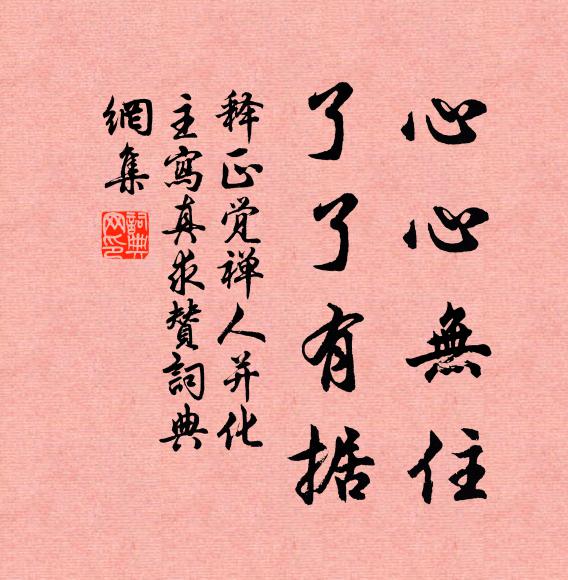 心心無住
了了有据
释正觉禅人并化
主寫真求赞詞典
網集
詞典网印